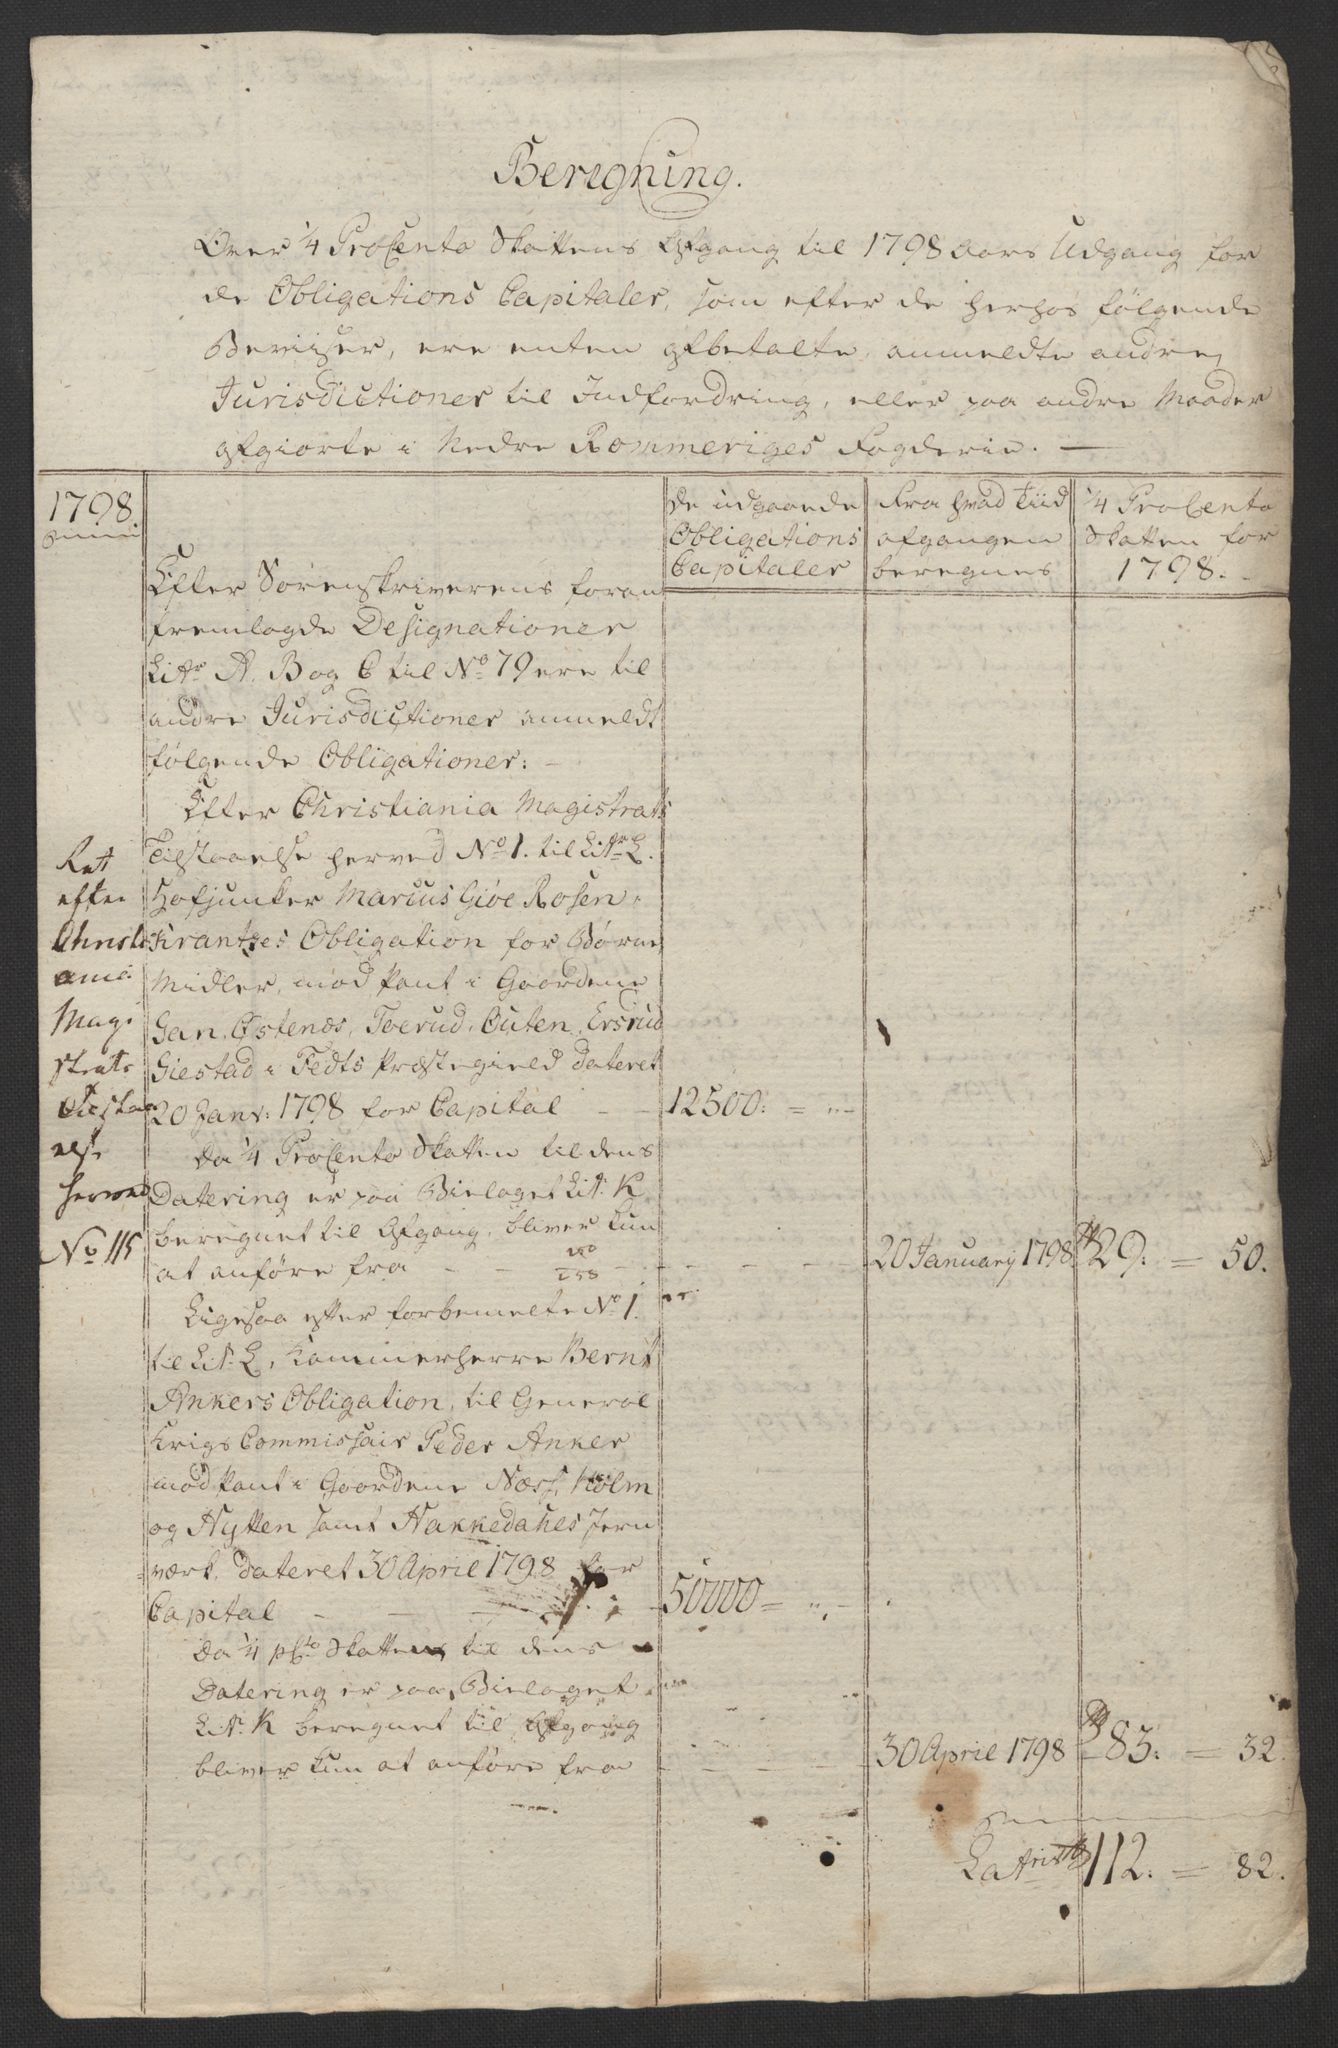 Beregning.
Over ¼ ProCento Skattens Afgang til 1798 Aars Udgang for
de Obligations Capitaler, som efter de herhos følgende
Beviiser, ere enten afbetalte, anmeldte andre
Jurisdictioner til Indfordring, eller paa andre Maader
afgiorte i Nedre Rommeriges Fogderie. —
1798.
De udgaaende
Obligations
Capitaler
Fra hvad Tiid
afgangen
beregnes
¼ ProCento
Skatten for
1798.
Efter Sorenskriverens foran
fremlagde Designationer
Litr A. B og C til No 79 ere til
andre Jurisdictioner anmeldt
følgende Obligationer:
Efter Christiania Magistrats
Tilstaaelse herved No 1. til Litr L.
Hofjunker Marcus Giøe Rosen-
Krantzes Obligation for Børne
Midler, mod Pant i Gaardene
Gan, Østenæs, Toerud, Outen, Ersrud
Giestad i Fedts Præstegield dateret
20 Janv: 1798 for Capital - - 12500: = „ -
Da ¼ ProCento Skatten til dens
Datering er paa Bielaget Litr. K
beregnet til Afgang, bliver kun
at anføre fra - - - 20 January 1798 29. = 50.
Ligesaa efter forbemelte No 1.
til Litr. L, Kammerherre Bernt
Ankers Obligation, til General
Krigs Commissair Peder Anker
mod Pant i Gaardene Næss, Holm
og Nytten samt Hakkedahls Jern
værk, dateret 30 April 1798 for
Capital - - - 50000 = „ -
Da ¼ pCto Skatten til dens
Datering er paa Bielaget
Litr. K beregnet til Afgang
bliver kun at anføre fra - - - 30 April 1798 83. = 32.
Latris 112. = 82.
Ret
efter
Christi
ania
Magi
strats
tilstaa
else
herved
No 115